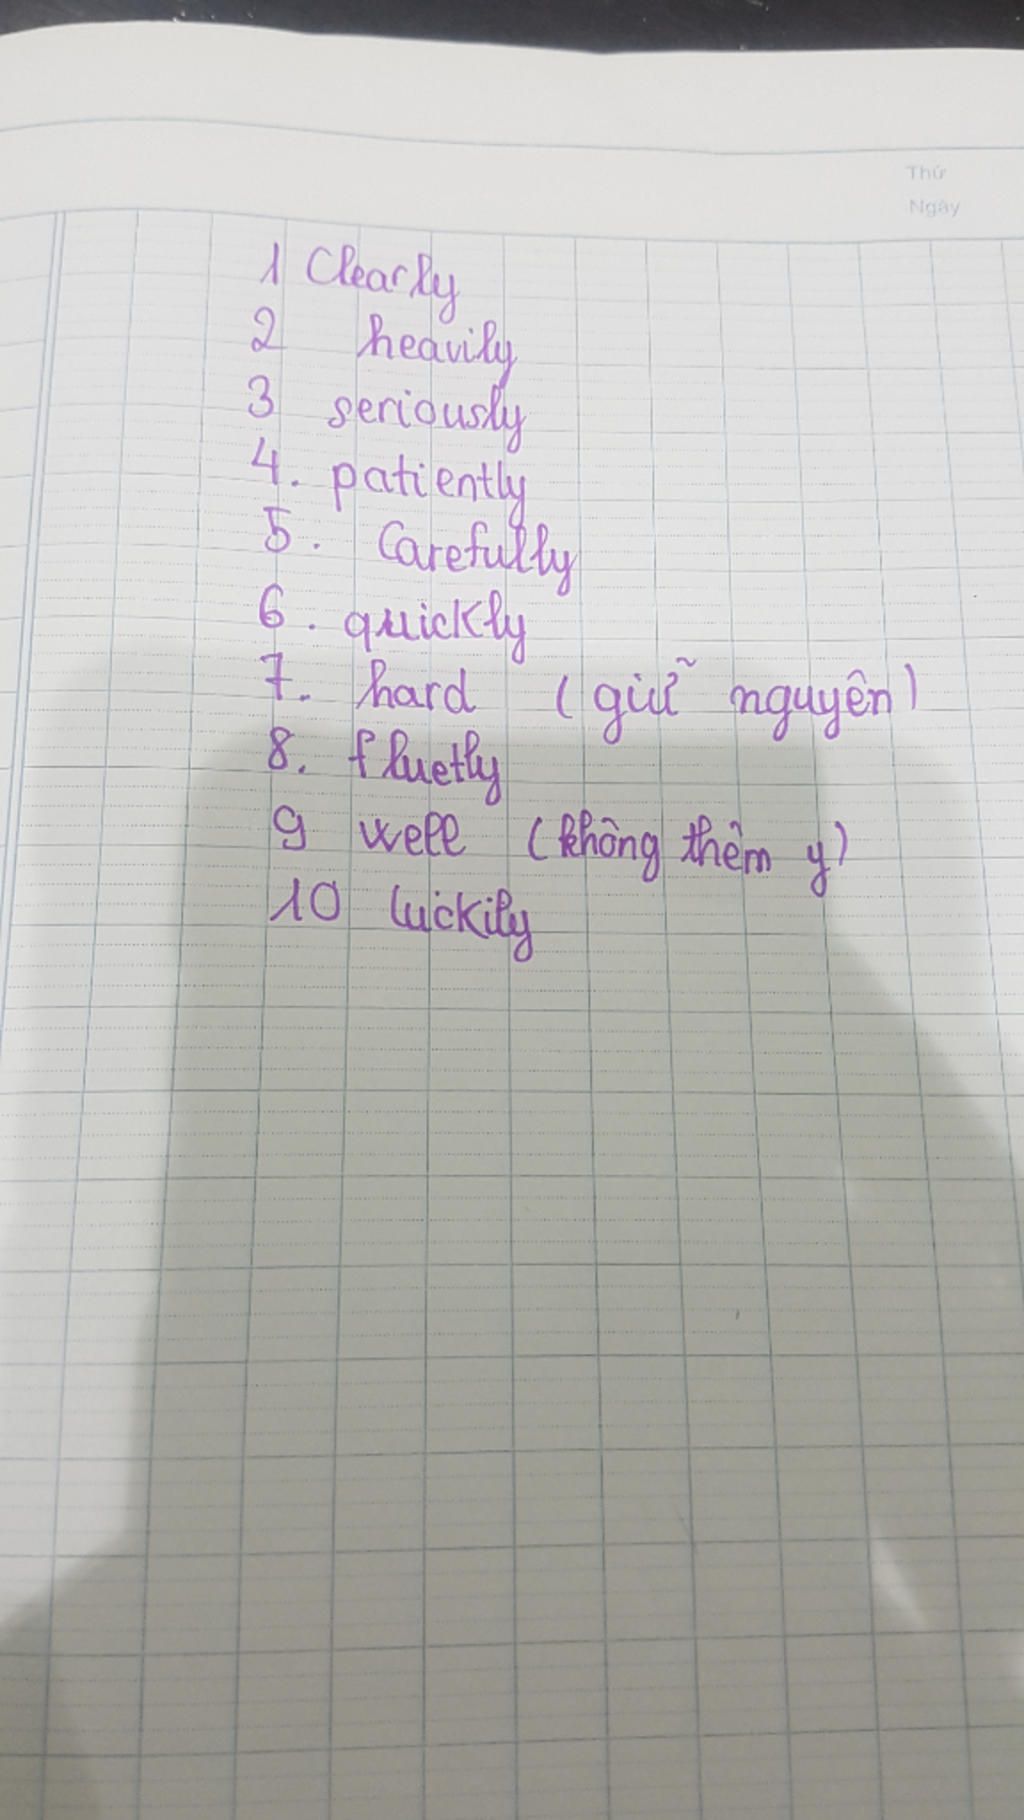 Thứ
Ngày
1 Clearly
2 heavily
3 seriously
4. patiently
5. Carefully
6. quickly
7. hard (giữ nguyên)
8. fluetly
9 well (không thêm y)
10 luckily